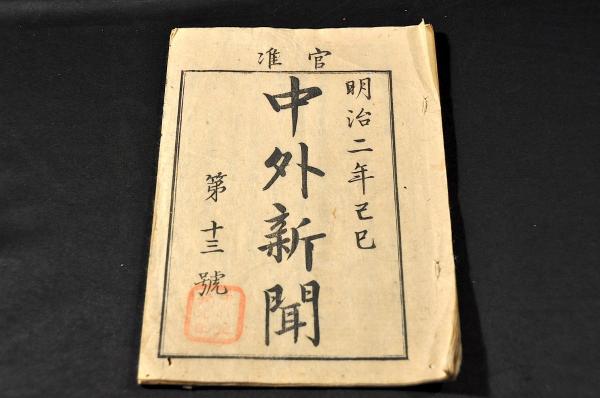 官准
明治二年己巳
中外新聞
第十三號